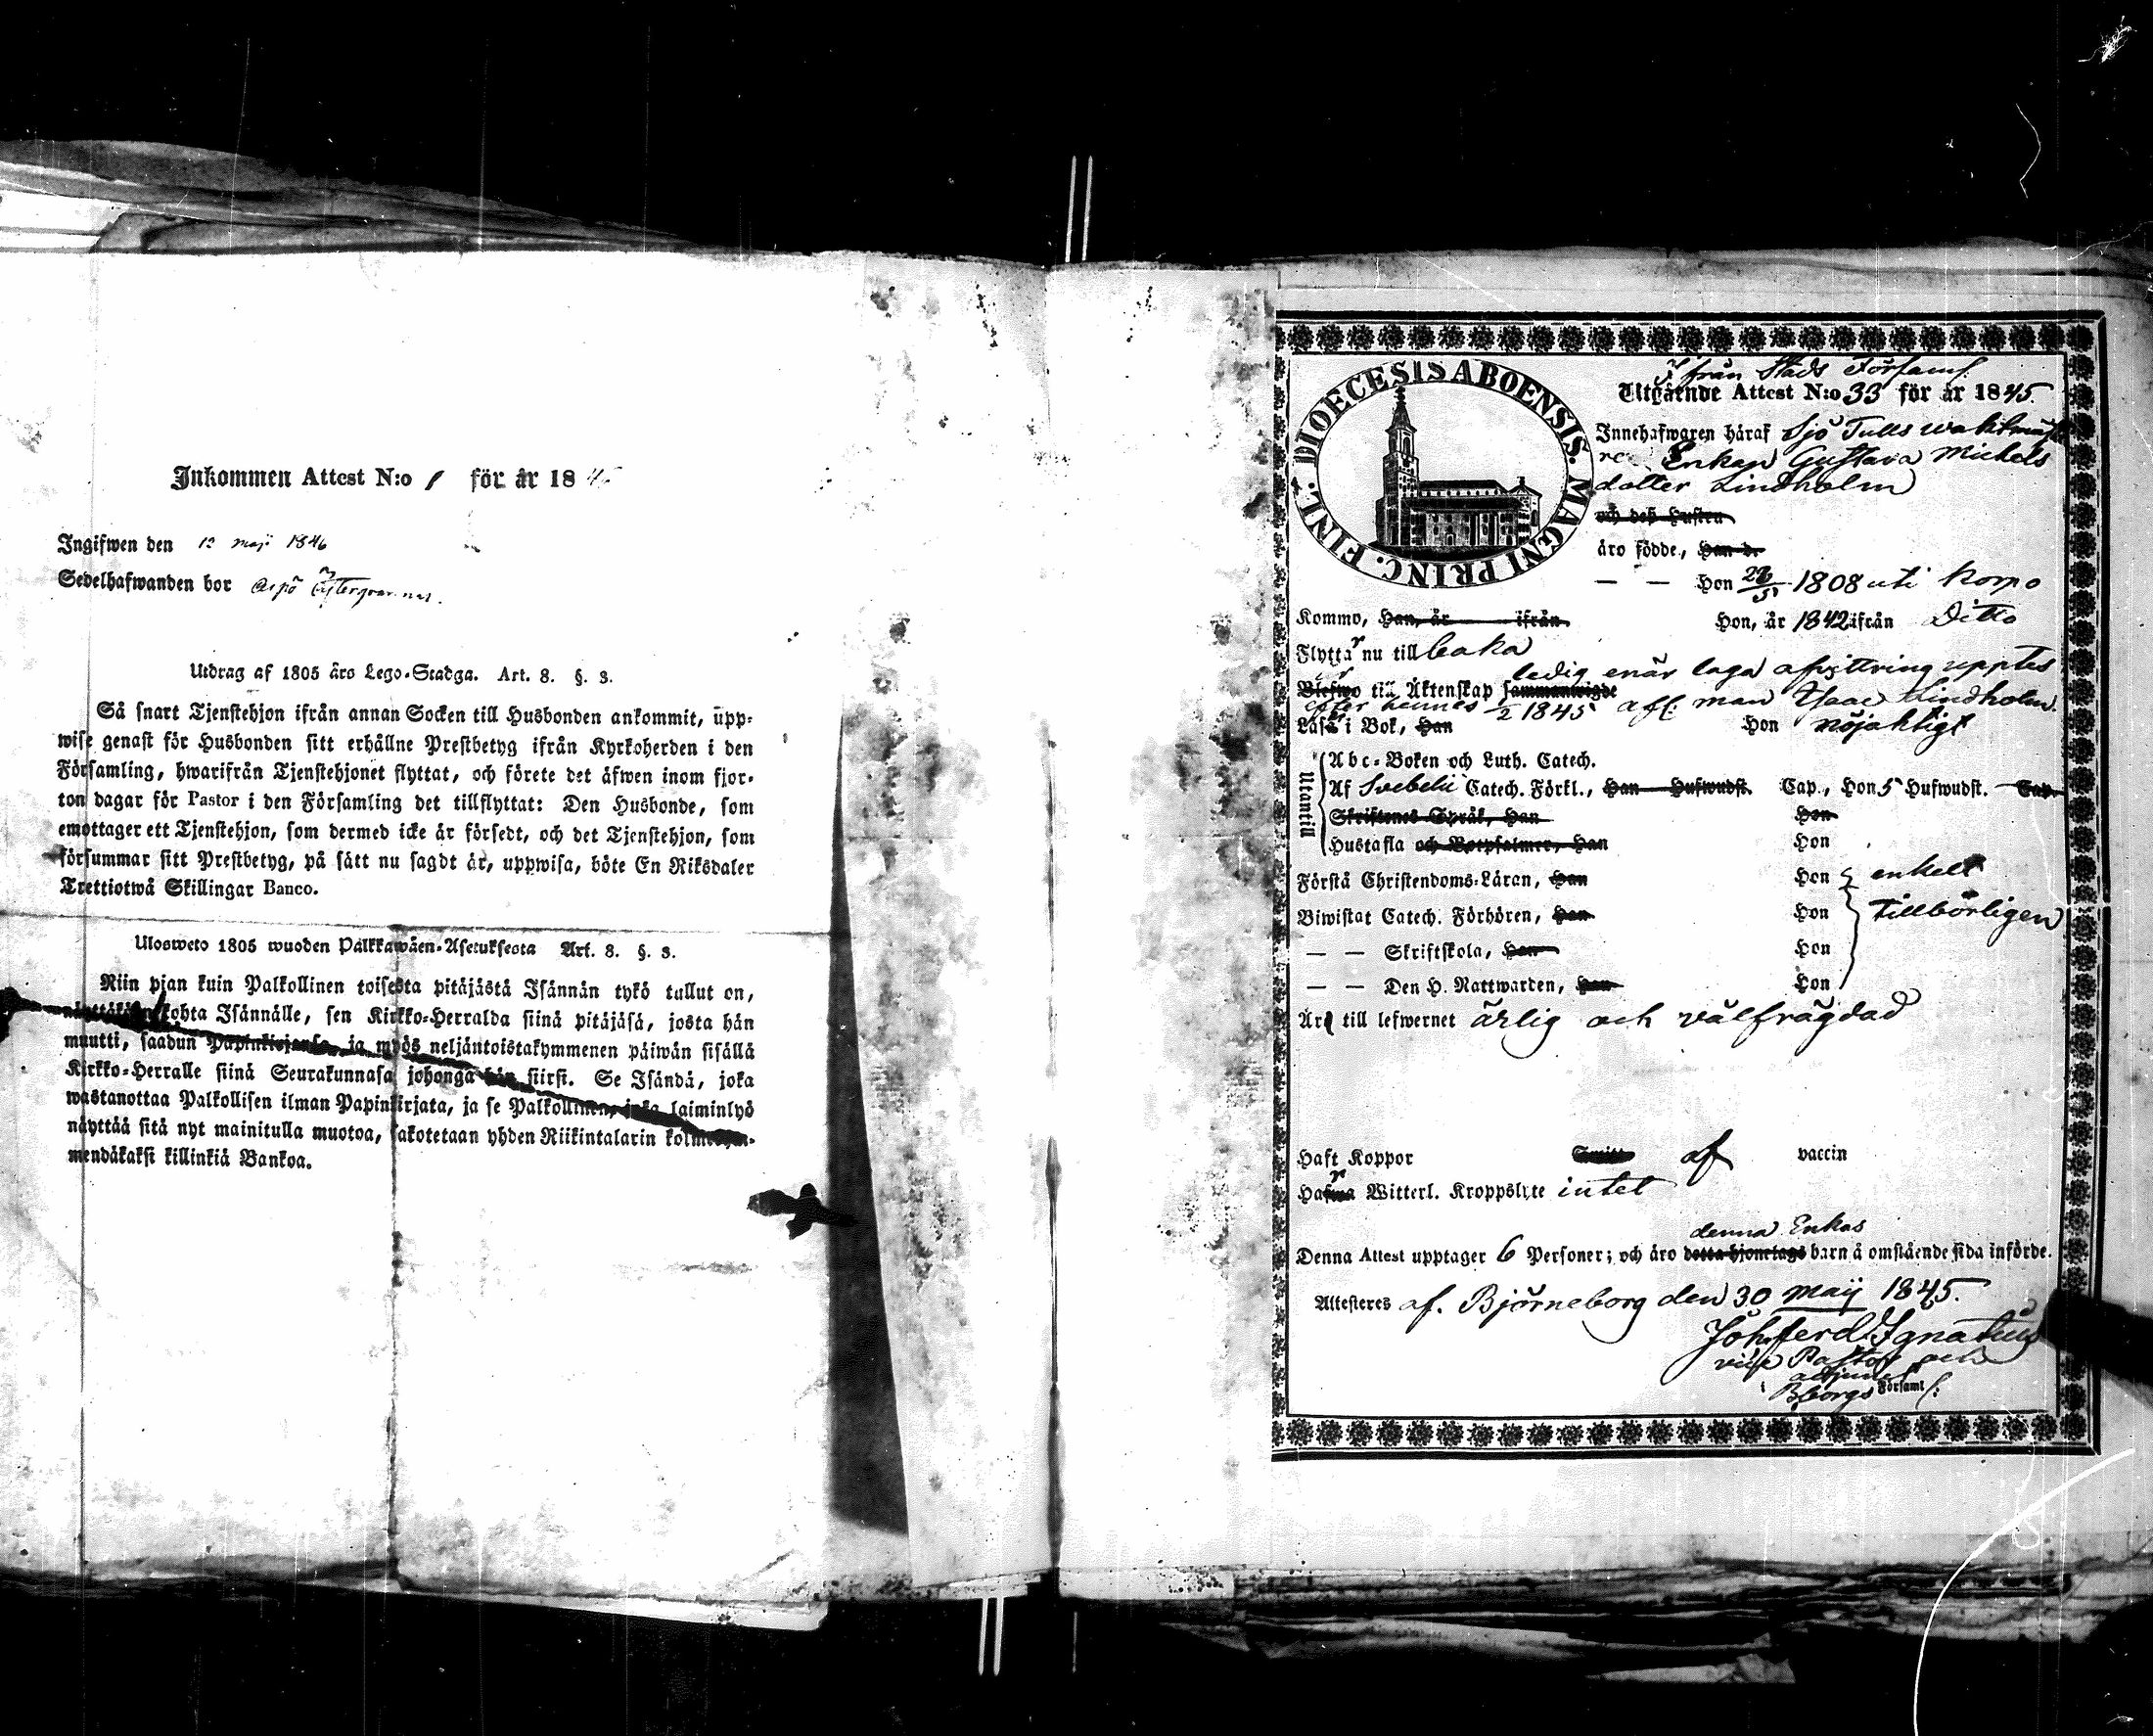 Inkommen Attest N:o 1 för år 18
Ingifwen den 12 maji 1846
Sedelhafwanden bor Aspö
Utdrag af 1805 års Lego-Stadga. Art. 8. §. 3.
Så snart Tjenstehjon ifrån annan Socken till Husbonden ankommit, upp-
wise genast för Husbonden sitt erhållne Prestbetyg ifrån Kyrkoherden i den
Församling, hwarifrån Tjenstehjonet flyttat, och förete det äfwen inom fjor-
ton dagar för Pastor i den Församling det tillflyttat: Den Husbonde, som
emottager ett Tjenstehjon, som dermed icke är försedt, och det Tjenstehjon, som
försummar sitt Prestbetyg, på sätt nu sagdt är, uppwisa, böte En Riksdaler
Trettiotwå Skillingar Banco.
Ulosweto 1805 wuoden Palkkawäen-Asetuksesta Art. 8. §. 3.
Niin pjan kuin Palkollinen toisesta pitäjästä Isännän tykö tullut on,
kohta Isännälle, sen Kirkko-Herralda siinä pitäjäsä, josta hän
muutti, saadun Papinkirjansa, ja myös neljäntoistakymmenen päiwän sisällä
Kirkko-Herralle siinä Seurakunnasa johonga hän siirsi. Se Isändä, joka
wastanottaa Palkollisen ilman Papinkirjata, ja se Palkollinen, joka laiminlyö
näyttää sitä nyt mainitulla muotoa, sakotetaan yhden Riikintalarin
mendäkaksi killinkiä Bankoa.
DIOECESIS ABOENSIS. MAGNI PRINC. FINL.
ifrån Stads Församl.
Utgående Attest N:o 33 för år 1845.
Innehafwaren häraf Sjö Tulls waktmästa
re Enkan Gustava Michels
dotter Lindholm
och deß Hustru
äro födde, Han d.
— — Hon 23/5 1808 uti Korpo
Kommo, Han, år ifrån Hon, år 1842 ifrån Ditto
Flyttar nu till baka
ledig enär laga afvittring upptes
Blefwo till Äktenskap sammanwigde
efter hennes /2 1845 afl. man Isaac Lindholm
Läsa i Bok, Han Hon nöjaktigt
Utantill
Abc-Boken och Luth. Catech.
Af Svebelii Catech. Förkl., Han Hufwudst. Cap., Hon 5 Hufwudst. Cap.
Skriftenes Språk, Han Hon
Hustafla och Botpsalmer, Han Hon
Förstå Christendoms-Läran, Han Hon enkelt
Biwistat Catech. Förhören, Han Hon tillbörligen
— — Skriftskola, Han Hon
— — Den H. Nattwarden, Han Hon
Är till lefwernet ärlig och välfrägdad
Haft Koppor af vaccin
Hafwa Witterl. Kroppslyte intet
denna Enkas
Denna Attest upptager 6 Personer; och äro detta hjonelags barn å omstående sida införde.
Attesteras af. Björneborg den 30 maij 1845.
Joh. Ferd. Ignatius
vice Pastor och
adjunct
i Bborgs Församl: